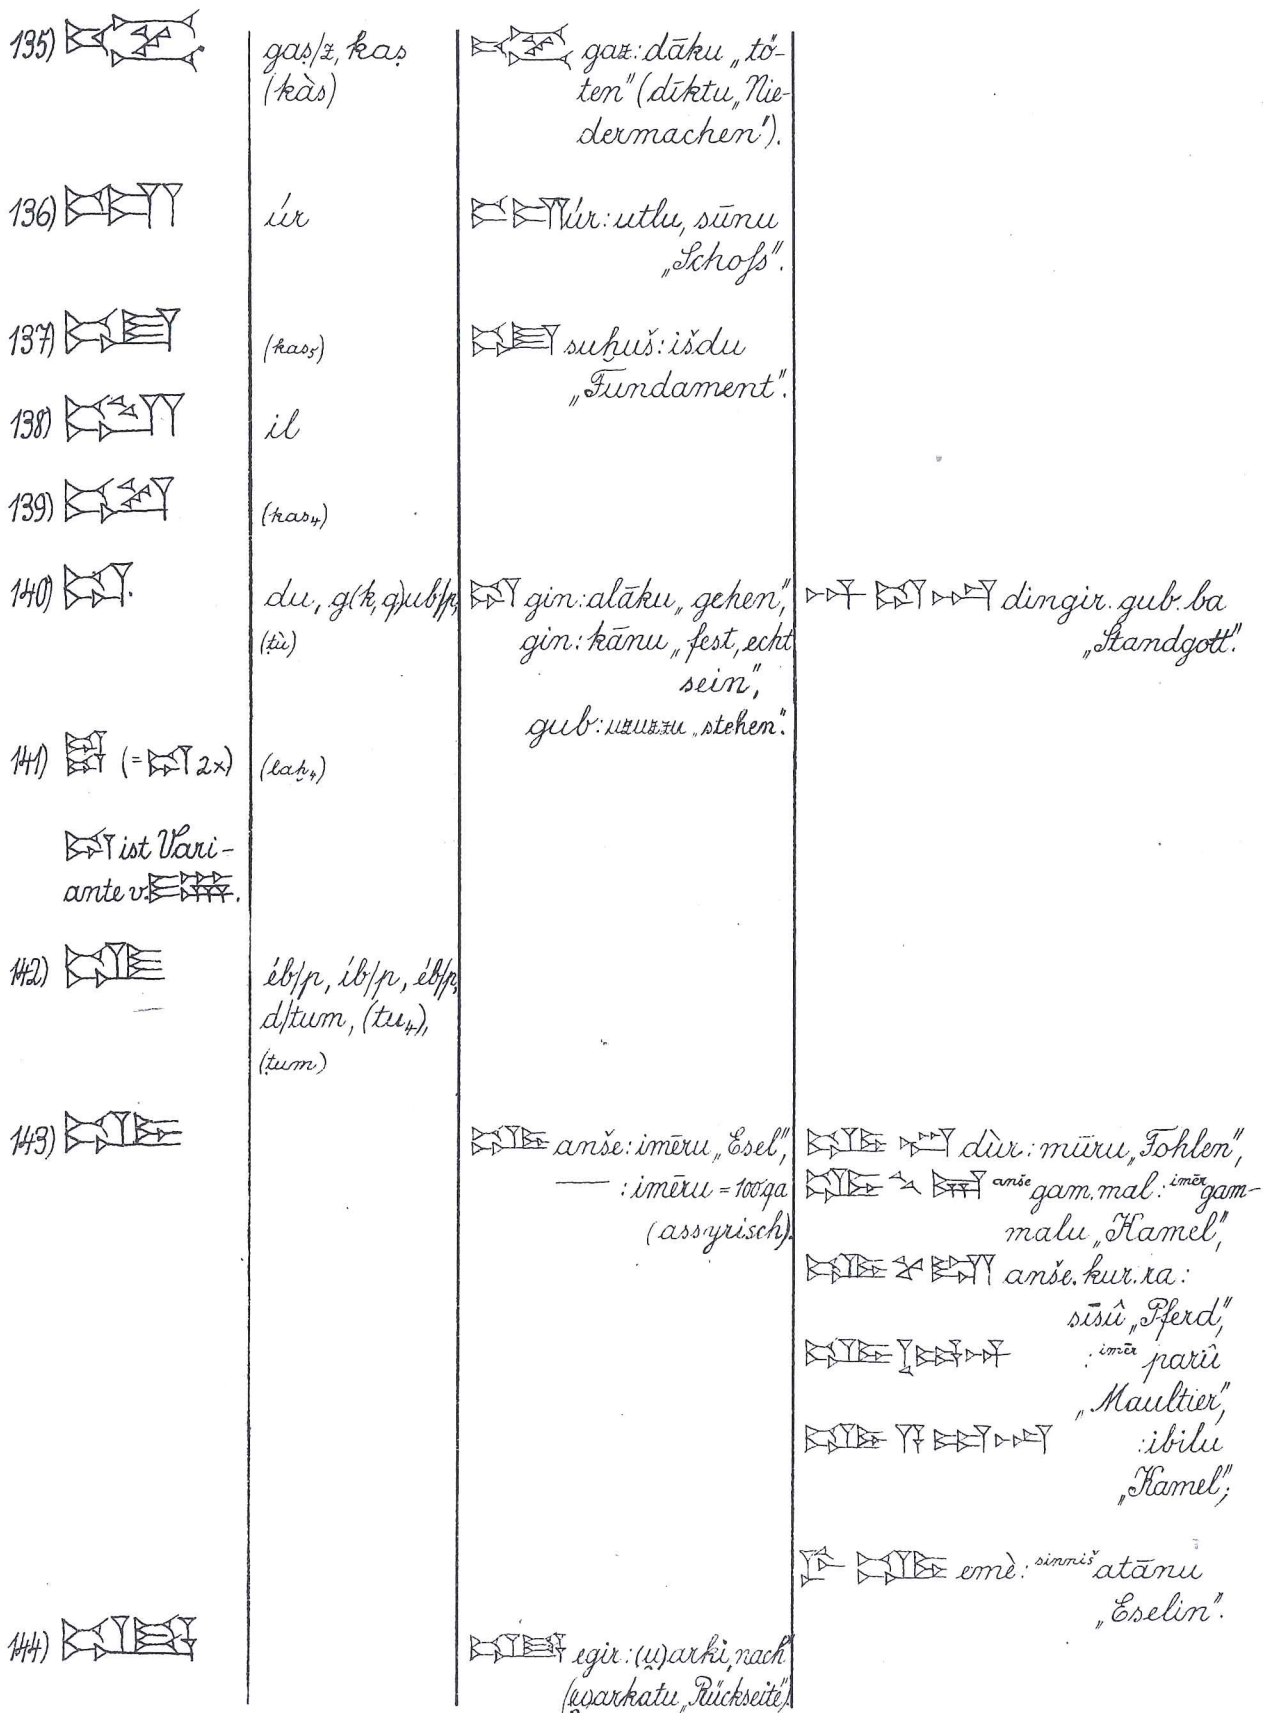 135)
gaṣ/z, kaṣ
(kàs)
gaz: dāku „tö-
ten" (dīktu „Nie-
dermachen").
136)
úr
úr: utlu, sūnu
„Schoſs".
137)
(kas₅)
suḫuš: išdu
„Fundament".
138)
il
139)
(kas₄)
140)
du, g(k,q)ub/p,
(ṭù)
gin: alāku „gehen",
gin: kānu „fest, echt
sein",
gub: uzuzzu „stehen".
dingir.gub.ba
„Standgott".
141) (= 2x)
(laḫ₄)
ist Vari-
ante v. .
142)
éb/p, íb/p, éb/p,
d/tum, (tu₄),
(ṭum)
143)
anše: imēru „Esel",
— : imēru = 100 qa
(assyrisch).
dùr: mūru „Fohlen",
anše gam.mal: imēr gam-
malu „Kamel",
anše.kur.ra:
sīsû „Pferd",
: imēr parû
„Maultier",
: ibilu
„Kamel";
emè: sinniš atānu
„Eselin".
144)
egir: (u̯)arki „nach"
(u̯)arkatu „Rückseite").